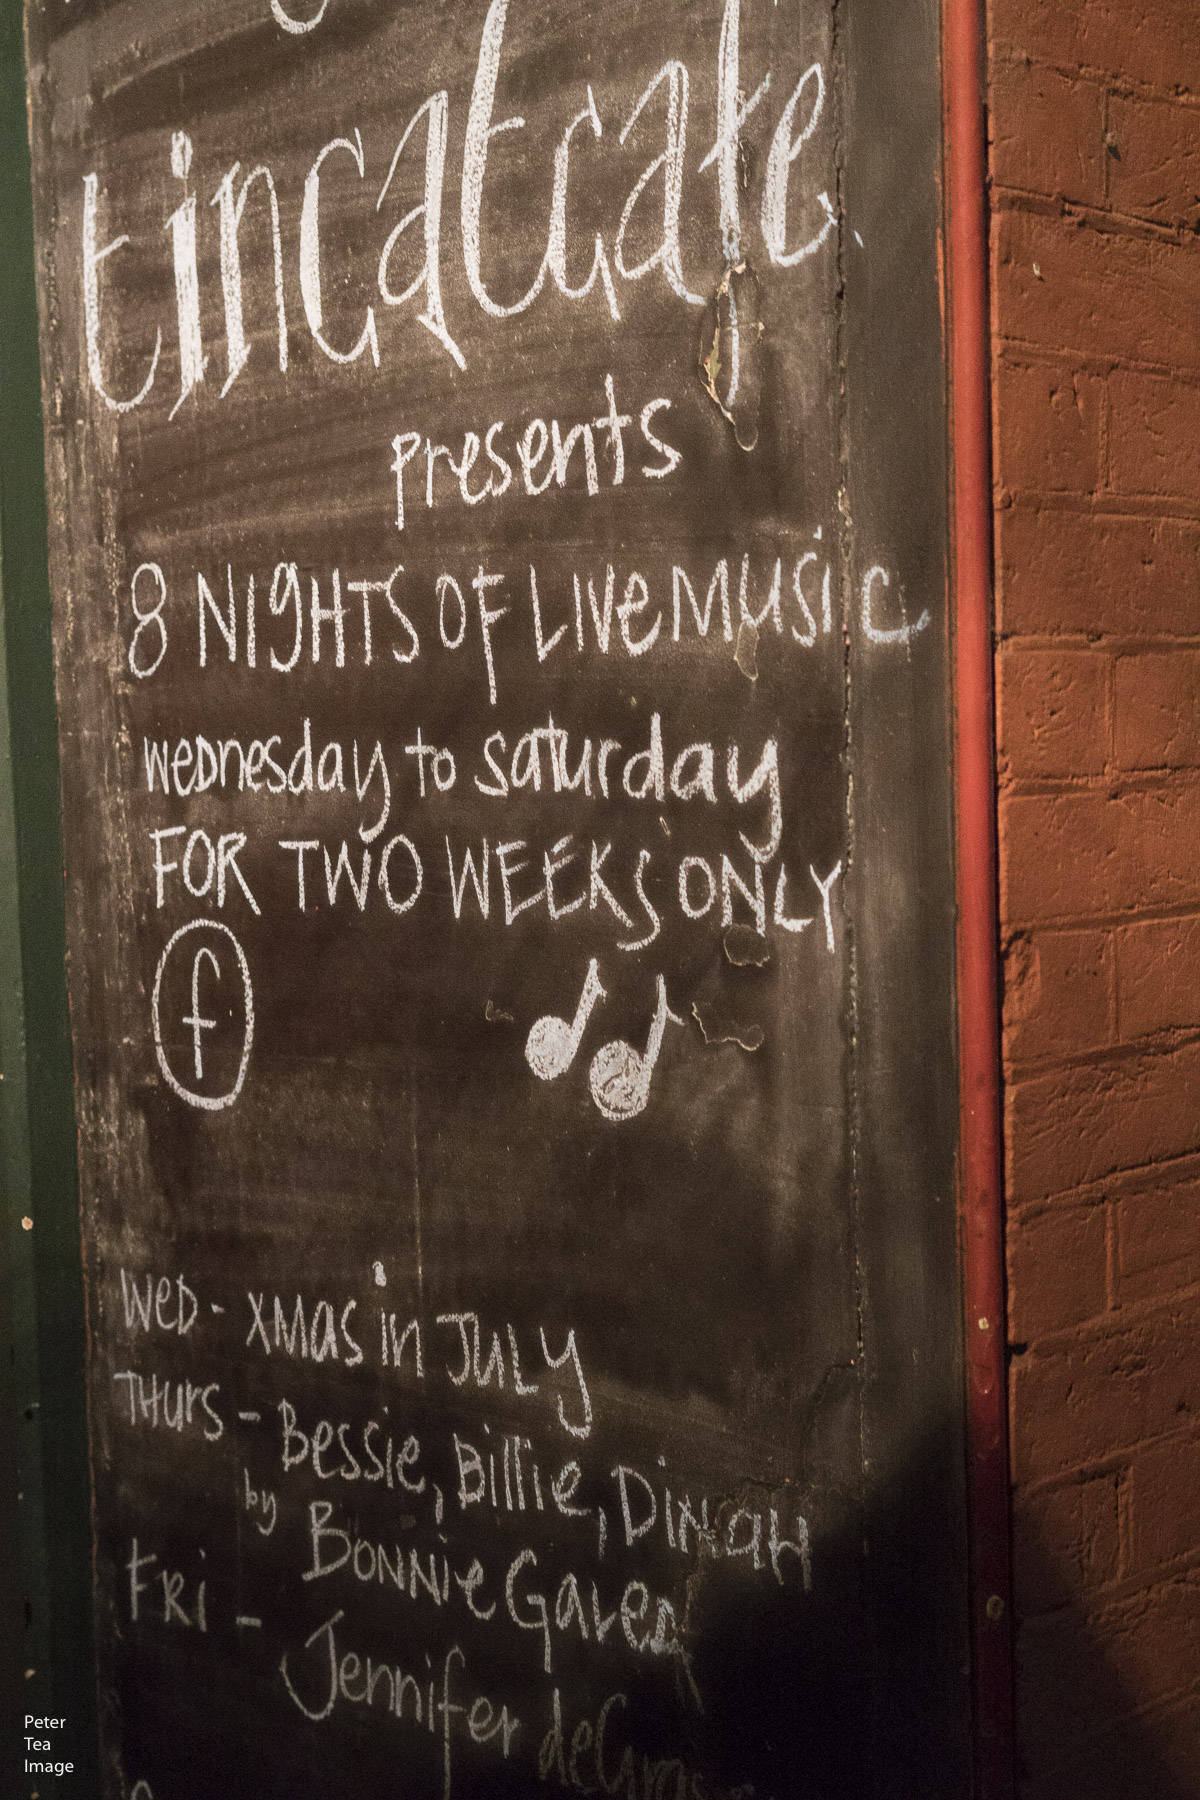 tincatcafe
presents
8 NIGHTS OF LIVE MUSIC
wednesday to saturday
FOR TWO WEEKS ONLY
f
WED - XMAS in JULY
THURS - Bessie, Billie, DINAH
by BONNIE Gales
FRI - Jennifer
Peter
Tea
Image